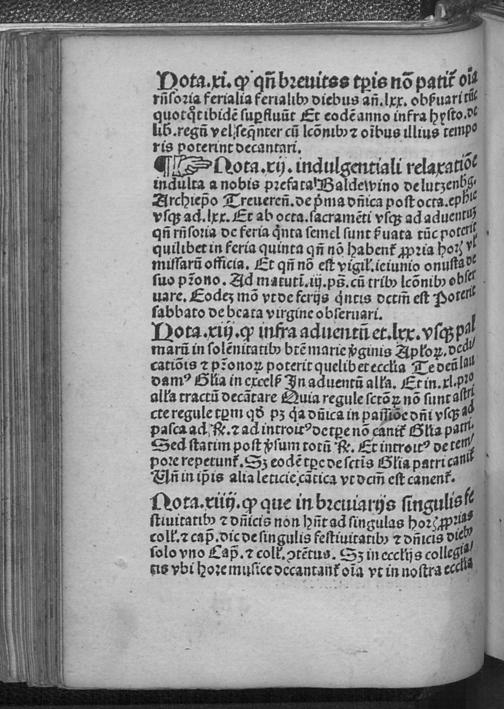 Nota.xi. ꝙ qñ breuitss tp̃is nõ patit᷑ oĩa
rñsoria ferialia ferialibꝫ diebus añ.lxx. obẜuari tũc
quotqt̉ ibidẽ suꝑfluũt Et eodẽ anno infra hysto.de
lib.regũ vel seqñter cũ lcõnibꝫ ⁊ oĩbus illius tempo
ris poterint decantari.
¶☞Nota.xij. indulgentiali relaxatiõe
indulta a nobis prefato Baldewino de lutzenbg.
Archiep̃o Treuereñ. de p̃ma dñica post octa.ephie
vsqꝫ ad.lxx. Et ab octa.sacramẽti vsqꝫ ad aduentuꝫ
qñ rñsoria de feria qnta semel sunt ẜuata tũc poterit
quilibet in feria quinta qñ nõ habent᷑ ꝓpria horꝝ vl̉
missarũ officia. Et qñ nõ est vigil̉.ieiunio onusta de
suo p̃rono. Ad matuti.iij.ps̃.cũ tribꝫ lcõnibꝫ obser
uare. Eodeꝫ mõ vt de ferijs qntis dctm̃ est Poterit
sabbato de beata virgine obseruari.
Nota.xiij.ꝙ infra aduentũ et.lxx. vsqꝫ pal
marũ in solẽnitatibꝫ btẽ marie ꝟginis Aplorꝝ.dedi
catiõis ⁊ p̃ronorꝝ poterit quelibet ecclia Te deũ lau
damꝰ Gl̃ia in excelẜ In aduentũ all̃a. Et in.xl.pro
all̃a tractũ decãtare Quia regule sctõrꝝ nõ sunt astri
cte regule tp̃m qd̉ pꝫ qa dñica in passiõe dñi vsqꝫ ad
pasca ad ℟. ⁊ ad introitꝰ de tp̃e nõ canit᷑ Gl̃ia patri.
Sed statim post ꝟsum totũ ℟. Et introitꝰ de tem/
pore repetunt᷑. Sꝫ eodẽ tp̃e de sctis Gl̃ia patri canit᷑
Vñ in ip̃is alia leticie cãtica vt dcm̃ est canent᷑.
Nota.xiiij. ꝙ que in breuiarijs singulis fe
stiuitatibꝫ ⁊ dñicis non hñt ad singulas horꝝ ꝓprias
coll̉. ⁊ cap̃. dic de singulis festiuitatibꝫ ⁊ dñicis diebꝫ
solo vno Cap̃. ⁊ coll̉. ꝯtẽtus. Sꝫ in ecclijs collegia/
tis vbi hore musice decantant᷑ oĩa vt in nostra ecclia